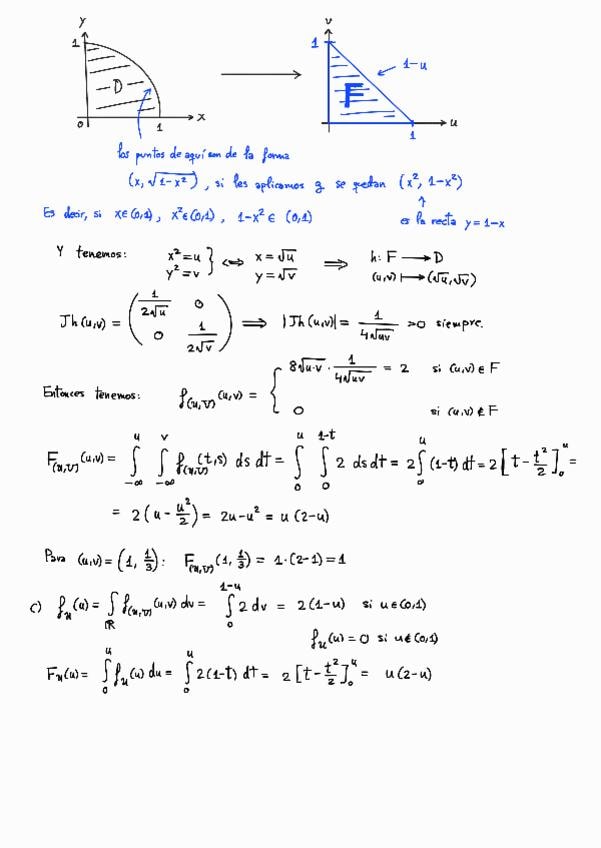 y
1
D
0 1 x
v
1
1-u
F
1 u
los puntos de aquí son de la forma
(x, √(1-x²)), si les aplicamos g se quedan (x², 1-x²)
Es decir, si x∈(0,1), x²∈(0,1), 1-x² ∈ (0,1)
↑ es la recta y=1-x
Y tenemos: x²=u y²=v } ⟺ x=√u y=√v ⟹ h: F ⟶ D (u,v) ⟼ (√u,√v)
Jh(u,v) = ( 1/(2√u) 0 0 1/(2√v) ) ⟹ |Jh(u,v)| = 1/(4√uv) >0 siempre.
Entonces tenemos: f_(U,V)(u,v) = { 8√u·v · 1/(4√uv) = 2 si (u,v)∈F
0 si (u,v)∉F
F_(U,V)(u,v) = ∫_{-∞}^{u} ∫_{-∞}^{v} f_(U,V)(t,s) ds dt = ∫_0^u ∫_0^{1-t} 2 ds dt = 2∫_0^u (1-t) dt = 2[t - t²/2]_0^u =
= 2(u - u²/2) = 2u-u² = u(2-u)
Para (u,v) = (1, 1/3): F_(U,V)(1, 1/3) = 1·(2-1) = 1
c) f_U(u) = ∫_ℝ f_(U,V)(u,v) dv = ∫_0^{1-u} 2 dv = 2(1-u) si u∈(0,1)
f_U(u) = 0 si u∉(0,1)
F_U(u) = ∫_0^u f_U(u) du = ∫_0^u 2(1-t) dt = 2[t - t²/2]_0^u = u(2-u)